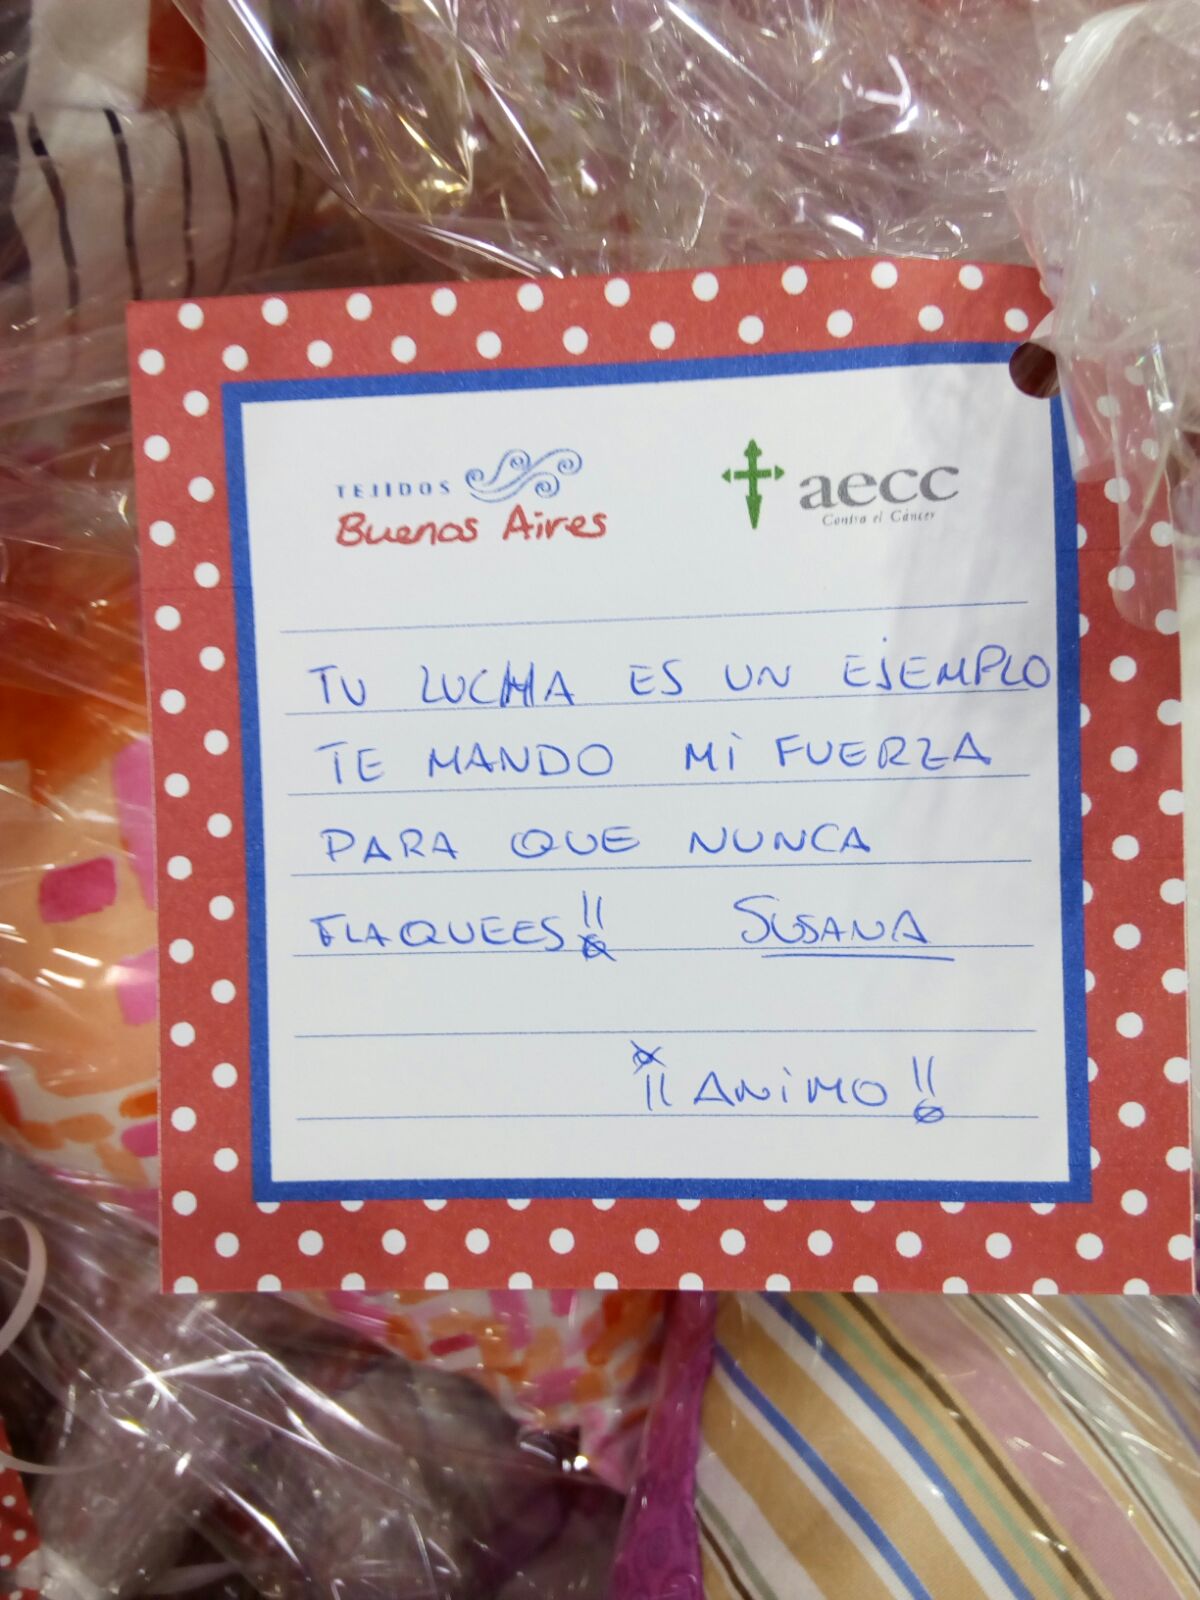 TEJIDOS
Buenos Aires
aecc
Contra el Cáncer
TU LUCHA ES UN EJEMPLO
TE MANDO MI FUERZA
PARA QUE NUNCA
FLAQUEES!! SUSANA
¡¡ANIMO!!